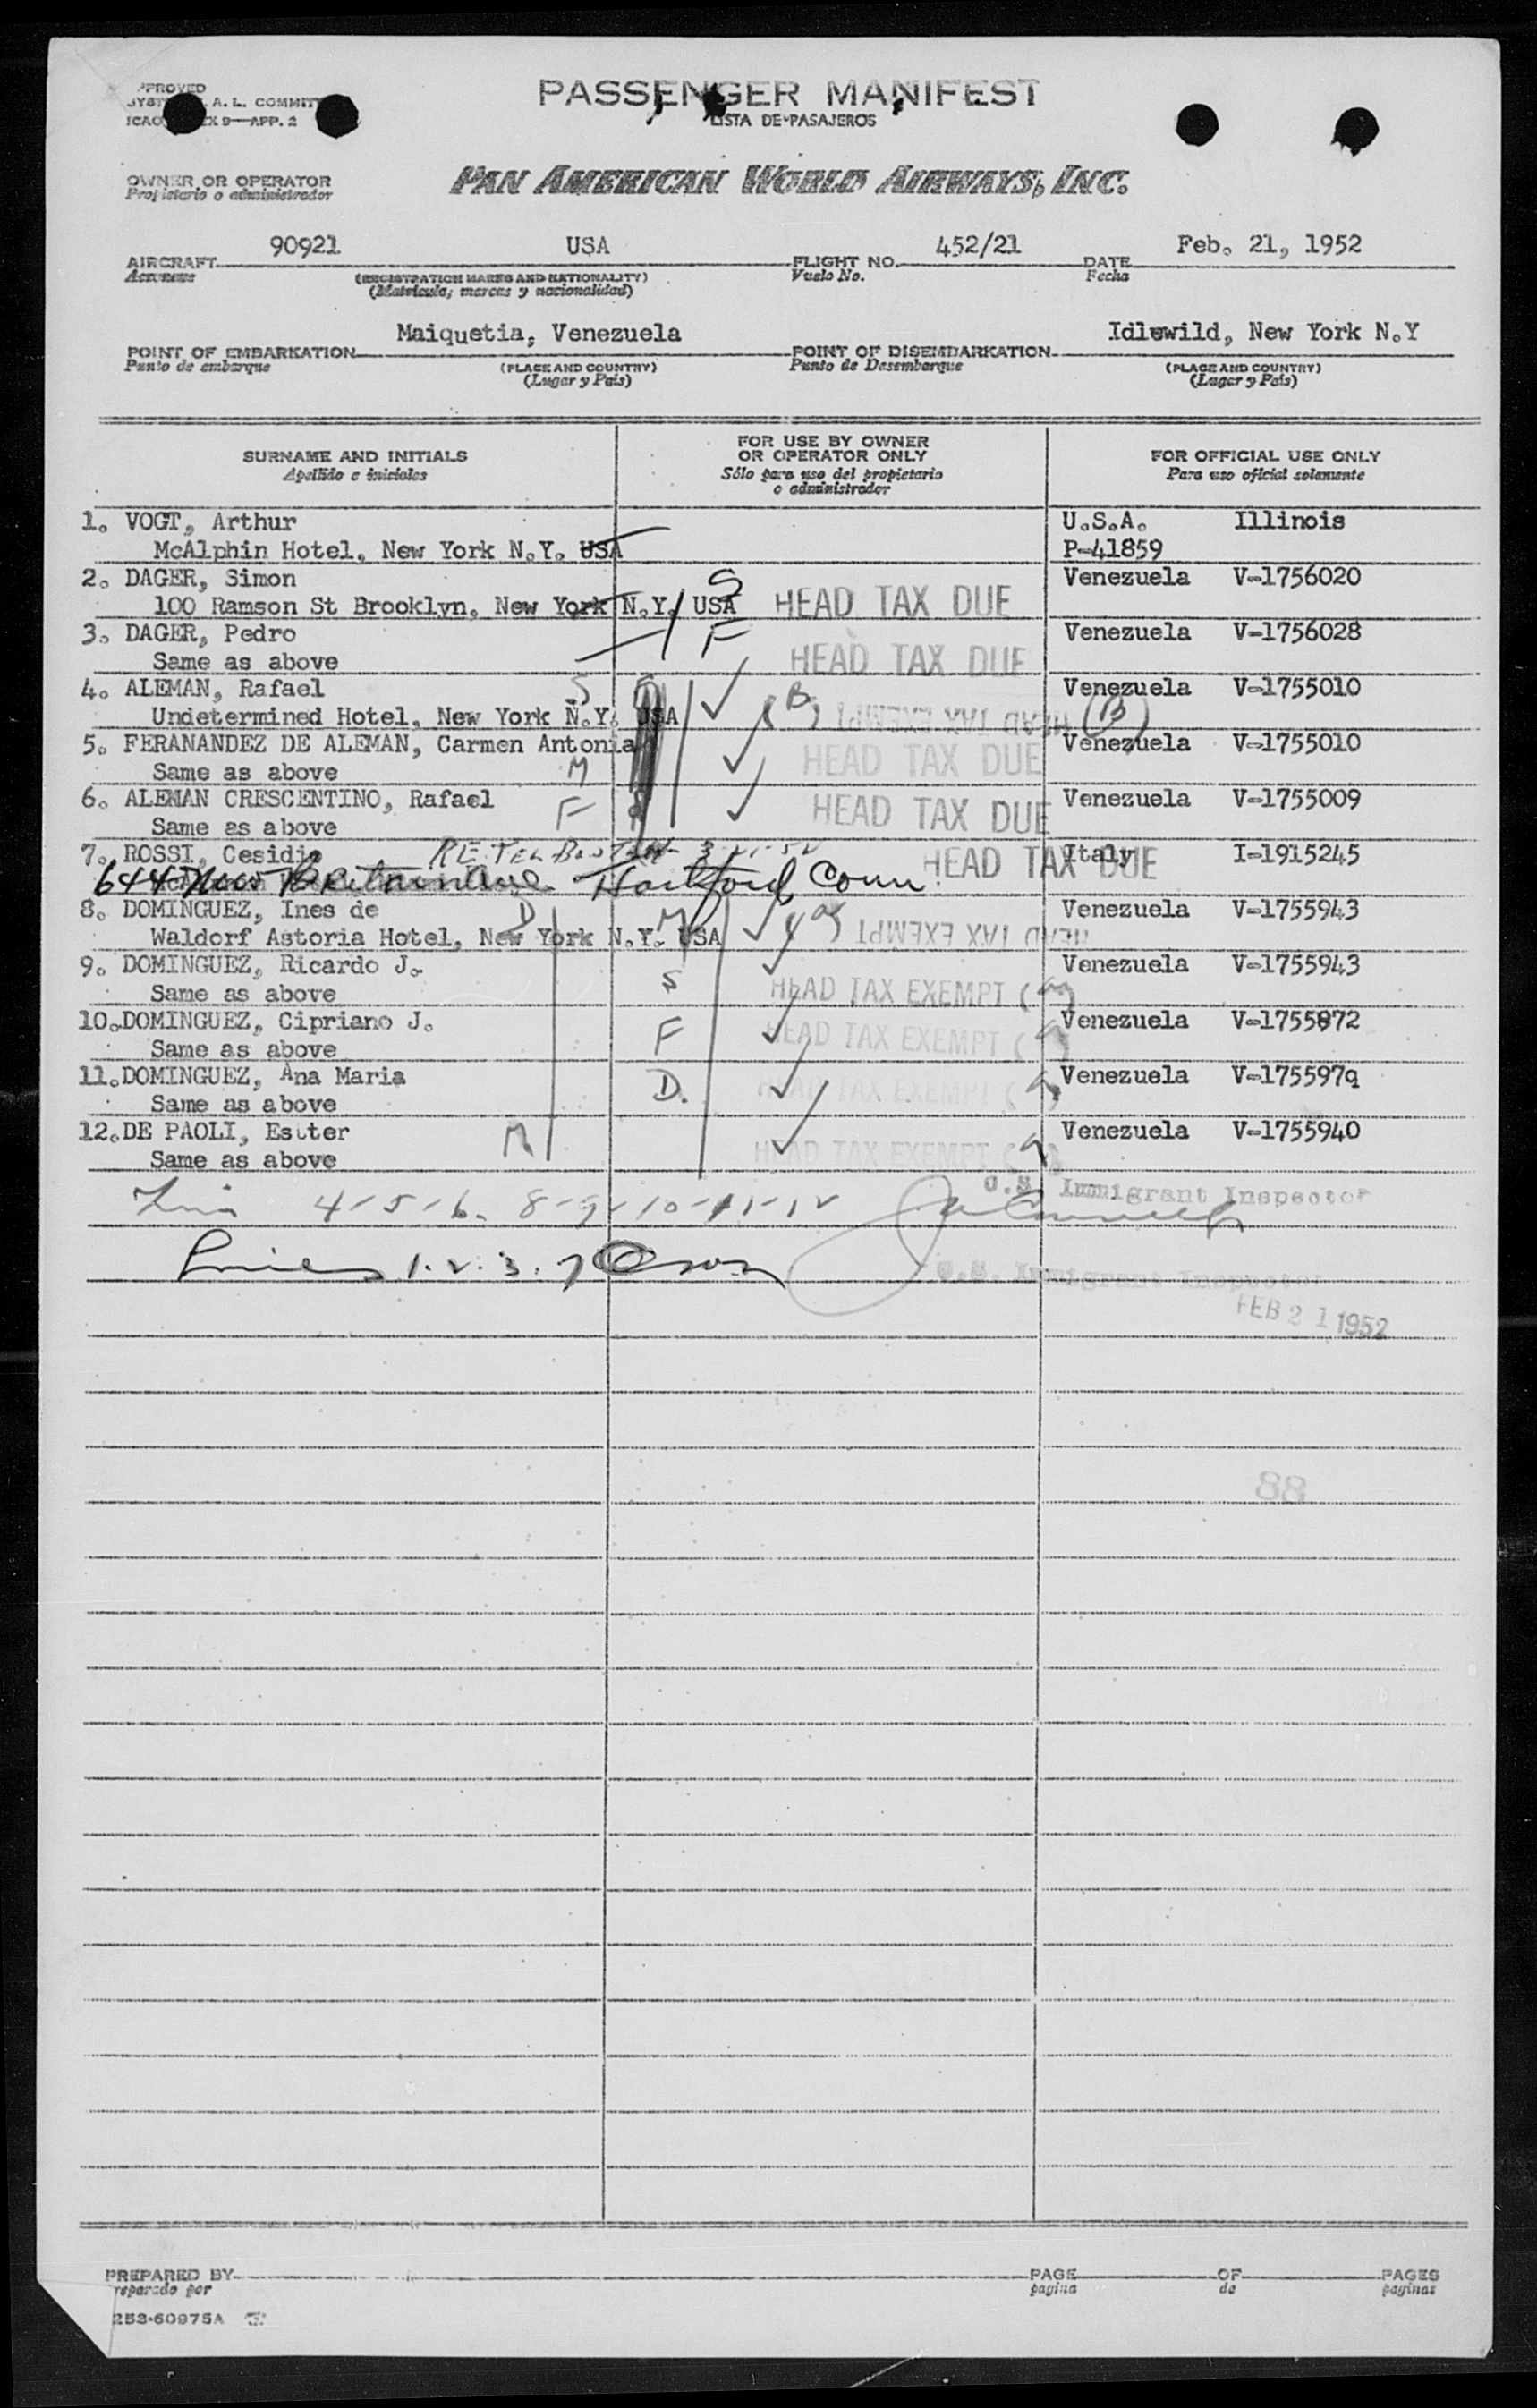 PASSENGER MANIFEST
LISTA DE PASAJEROS
A. L. COMMIT
9—APP. 2
OWNER OR OPERATOR
Propietario o administrador
PAN AMERICAN WORLD AIRWAYS, INC.
AIRCRAFT 90921 USA FLIGHT NO. 452/21 DATE Feb. 21, 1952
Aeronave (REGISTRATION MARKS AND NATIONALITY) Vuelo No. Fecha
(Matricula; marcas y nacionalidad)
POINT OF EMBARKATION Maiquetia, Venezuela POINT OF DISEMBARKATION Idlewild, New York N.Y
Punto de embarque (PLACE AND COUNTRY) Punto de Desembarque (PLACE AND COUNTRY)
(Lugar y País) (Lugar y País)
SURNAME AND INITIALS FOR USE BY OWNER OR OPERATOR ONLY FOR OFFICIAL USE ONLY
Apellido e iniciales Sólo para uso del propietario o administrador Para uso oficial solamente
1. VOGT, Arthur U.S.A. Illinois
McAlphin Hotel, New York N.Y. USA P-41859
2. DAGER, Simon S Venezuela V-1756020
100 Ramson St Brooklyn, New York N.Y. USA HEAD TAX DUE
3. DAGER, Pedro F Venezuela V-1756028
Same as above HEAD TAX DUE
4. ALEMAN, Rafael S Venezuela V-1755010
Undetermined Hotel, New York N.Y. USA (B) HEAD TAX EXEMPT (B)
5. FERANANDEZ DE ALEMAN, Carmen Antonia Venezuela V-1755010
Same as above M HEAD TAX DUE
6. ALEMAN CRESCENTINO, Rafael Venezuela V-1755009
Same as above F HEAD TAX DUE
7. ROSSI, Cesidio Italy I-1915245
644 New Britain Ave. Hartford Conn. HEAD TAX DUE
8. DOMINGUEZ, Ines de D M Venezuela V-1755943
Waldorf Astoria Hotel, New York N.Y. USA HEAD TAX EXEMPT
9. DOMINGUEZ, Ricardo J. S Venezuela V-1755943
Same as above HEAD TAX EXEMPT (
10. DOMINGUEZ, Cipriano J. F Venezuela V-1755872
Same as above HEAD TAX EXEMPT (
11. DOMINGUEZ, Ana Maria D. Venezuela V-175597q
Same as above HEAD TAX EXEMPT (
12. DE PAOLI, Estter M Venezuela V-1755940
Same as above HEAD TAX EXEMPT (
4-5-6- 8-9-10-11-12 U.S. Immigrant Inspector
Lines 1.2.3.7
U.S. Immigrant Inspector
FEB 21 1952
88
PREPARED BY PAGE OF PAGES
reparado por pagina de paginas
253-60975A